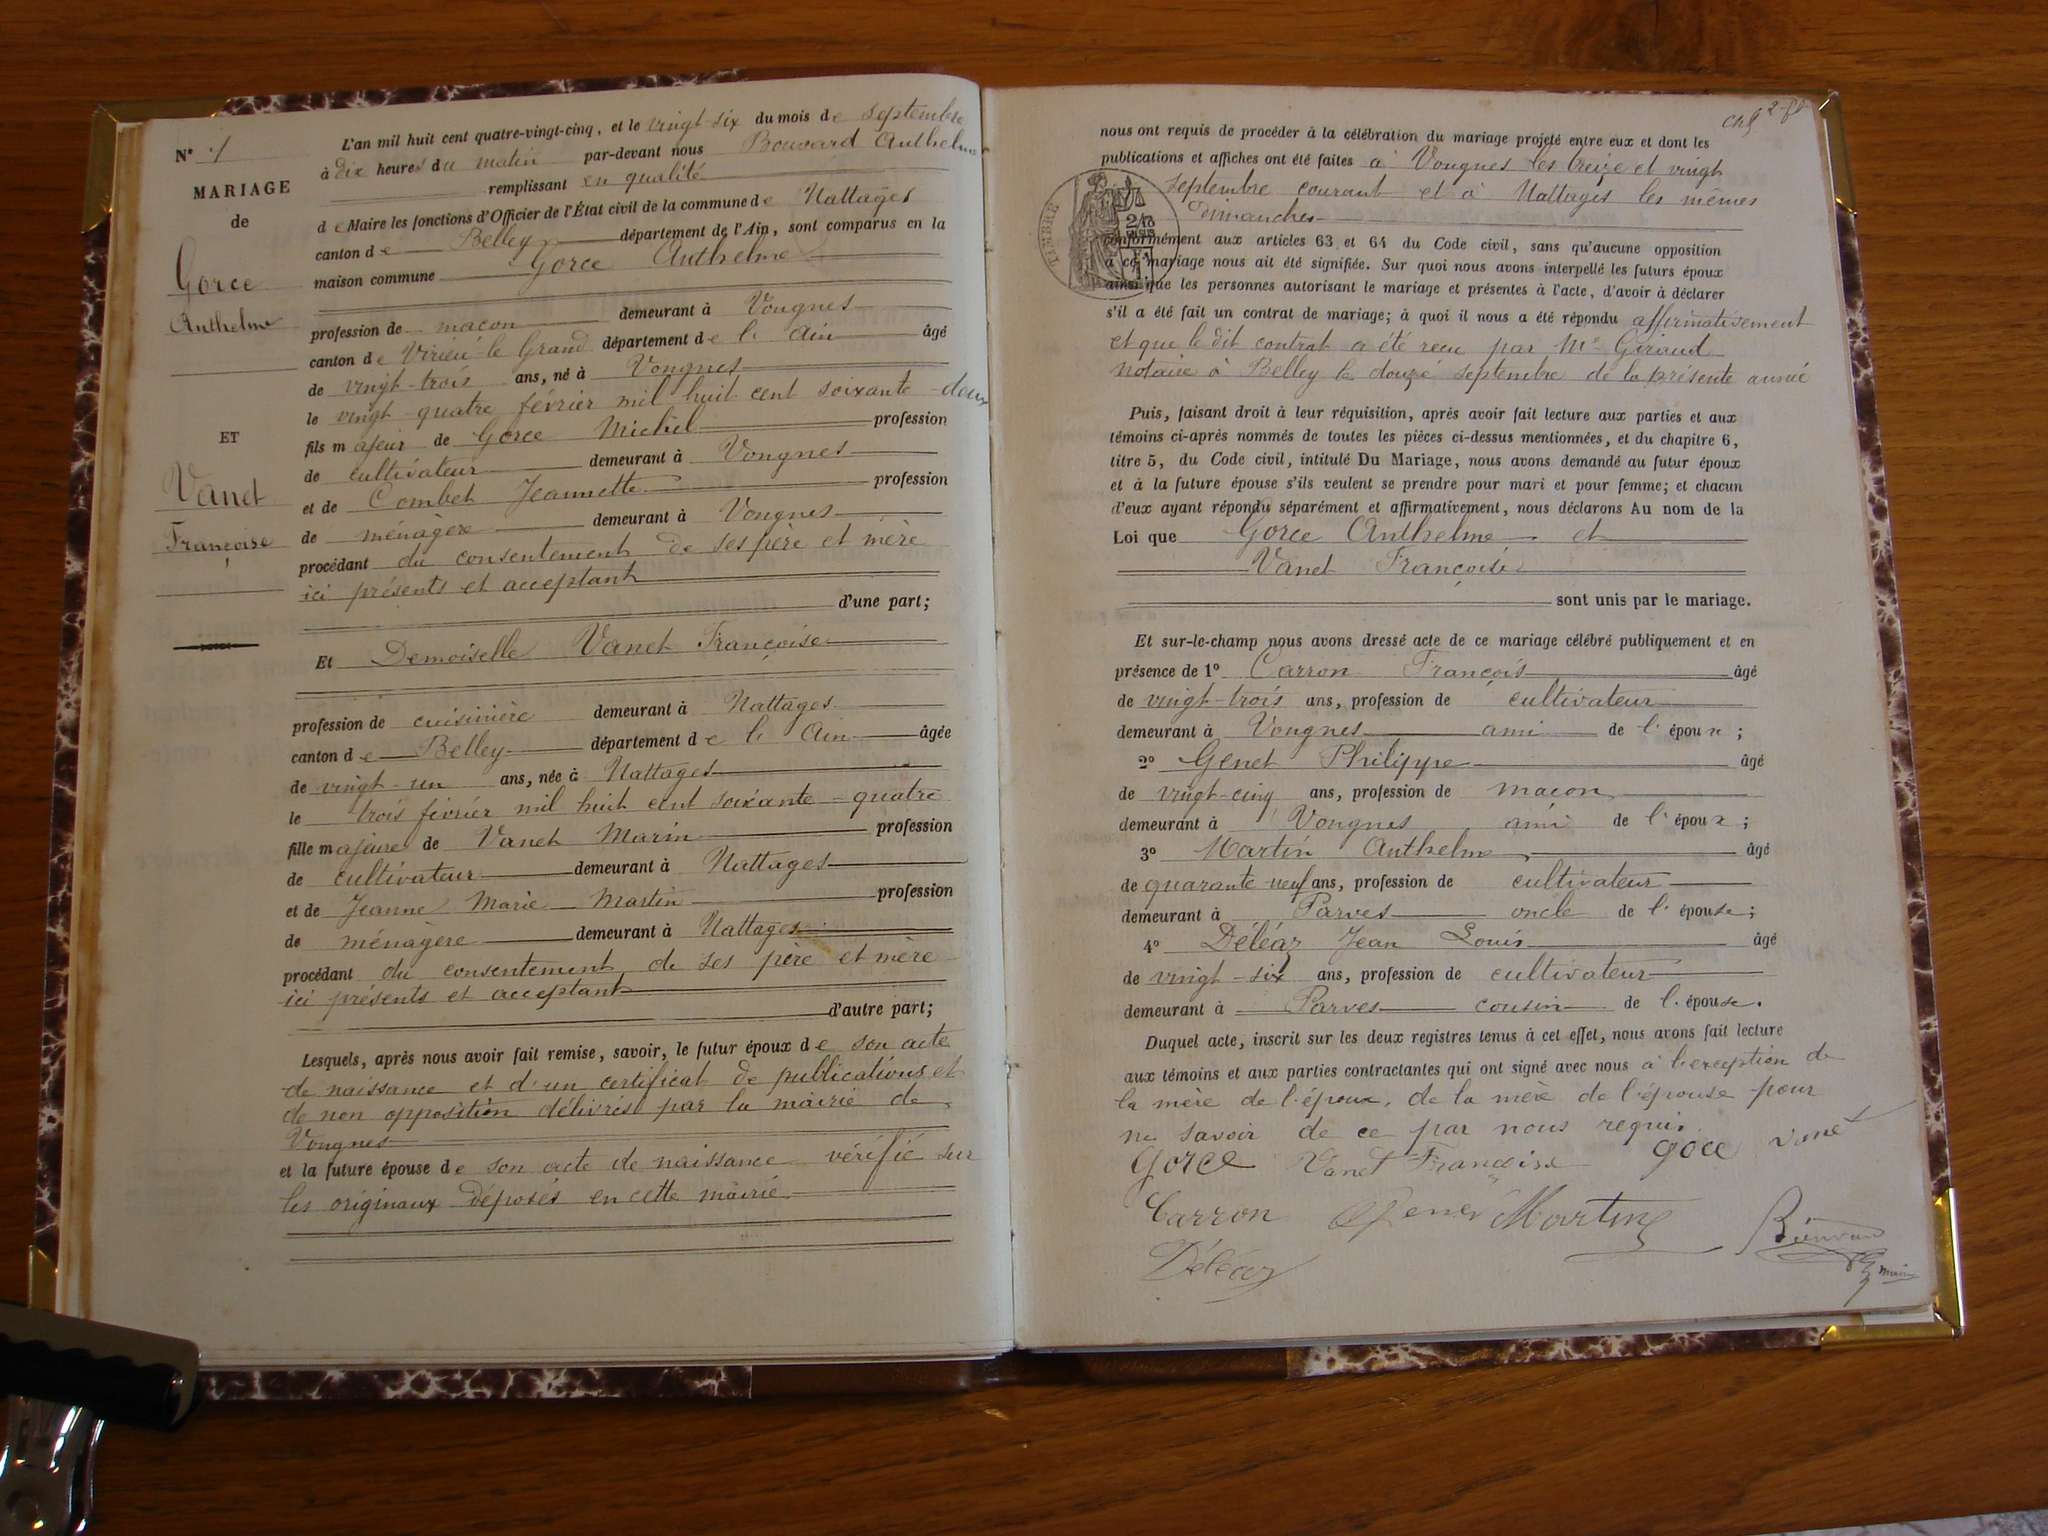 L'an mil huit cent quatre-vingt-cinq, et le vingt-six du mois de septembre
N°
à dix heures du matin par-devant nous Bouvard Anthelme
remplissant en qualité
MARIAGE
de Maire les fonctions d'Officier de l'État civil de la commune de Nattages
de
canton de Belley département de l'Ain, sont comparus en la
Gorce
maison commune Gorce Anthelme
Anthelme
profession de macon demeurant à Vongnes
canton de Virieu le Grand département de l'Ain âgé
de vingt-trois ans, né à Vongnes
le vingt quatre février mil huit cent soixante-deux
ET
fils majeur de Gorce Michel profession
de cultivateur demeurant à Vongnes
Vanet
et de Combet Jeannette profession
Françoise
de ménagère demeurant à Vongnes
procédant du consentement de ses père et mère
ici présents et acceptant
d'une part;
Et Demoiselle Vanet Françoise
profession de cuisinière demeurant à Nattages
canton de Belley département de l'Ain âgée
de vingt-un ans, née à Nattages
le trois février mil huit cent soixante-quatre
fille majeure de Vanet Marin profession
de cultivateur demeurant à Nattages
et de Jeanne Marie Martin profession
de ménagère demeurant à Nattages
procédant du consentement de ses père et mère
ici présents et acceptant
d'autre part;
Lesquels, après nous avoir fait remise, savoir, le futur époux de son acte
de naissance et d'un certificat de publications et
de non opposition délivrés par la mairie de
Vongnes
et la future épouse de son acte de naissance vérifié sur
les originaux déposés en cette mairie
nous ont requis de procéder à la célébration du mariage projeté entre eux et dont les
publications et affiches ont été faites à Vongnes les treize et vingt
septembre courant et à Nattages les mêmes
Dimanches
TIMBRE
conformément aux articles 63 et 64 du Code civil, sans qu'aucune opposition
à ce mariage nous ait été signifiée. Sur quoi nous avons interpellé les futurs époux
ainsi que les personnes autorisant le mariage et présentes à l'acte, d'avoir à déclarer
s'il a été fait un contrat de mariage; à quoi il nous a été répondu affirmativement
et que le dit contrat a été recu par Me Giraud
notaire à Belley le douze septembre de la présente année
Puis, faisant droit à leur réquisition, après avoir fait lecture aux parties et aux
témoins ci-après nommés de toutes les pièces ci-dessus mentionnées, et du chapitre 6,
titre 5, du Code civil, intitulé Du Mariage, nous avons demandé au futur époux
et à la future épouse s'ils veulent se prendre pour mari et pour femme; et chacun
d'eux ayant répondu séparément et affirmativement, nous déclarons Au nom de la
Loi que Gorce Anthelme et
Vanet Françoise
sont unis par le mariage.
Et sur-le-champ nous avons dressé acte de ce mariage célébré publiquement et en
présence de 1° Carron François âgé
de vingt-trois ans, profession de cultivateur
demeurant à Vongnes ami de l'époux;
2° Genet Philippe âgé
de vingt-cinq ans, profession de macon
demeurant à Vongnes ami de l'époux;
3° Martin Anthelme âgé
de quarante neuf ans, profession de cultivateur
demeurant à Parves oncle de l'épouse;
4° Déléaz Jean Louis âgé
de vingt-six ans, profession de cultivateur
demeurant à Parves cousin de l'épouse.
Duquel acte, inscrit sur les deux registres tenus à cet effet, nous avons fait lecture
aux témoins et aux parties contractantes qui ont signé avec nous à l'exception de
la mère de l'époux, de la mère de l'épouse pour
ne savoir de ce par nous requis
Gorce Vanet Françoise goce vanet
Carron Martin
Déléaz